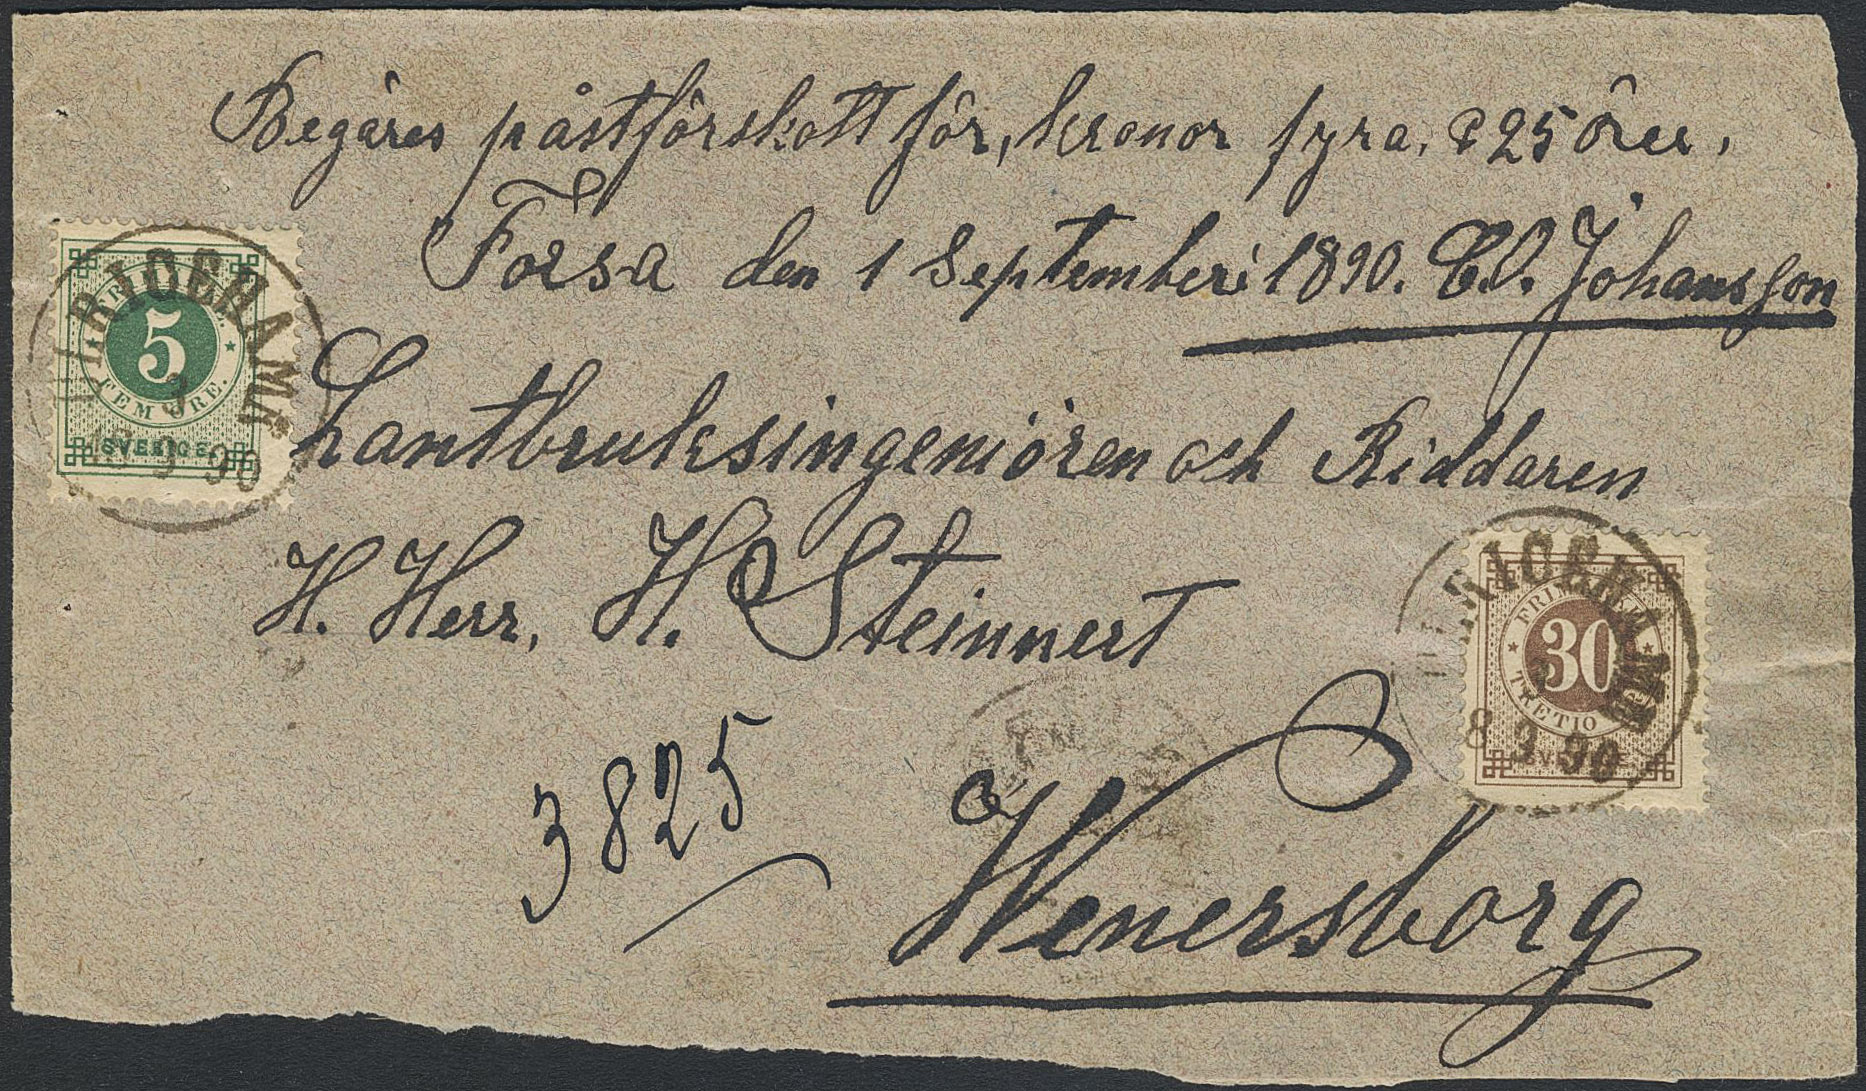 Begäres påstförskott för, kronor fyra, & 25 öre,
Forsa den 1 September 1890. C.O. Johansson
Lantbruksingeniören och Riddaren
H. Herr, H. Steinnert
3825
Wenersborg
5
FEM ÖRE.
SVERIGE
FRIMÄRKE
30
TRETIO
8 9 90